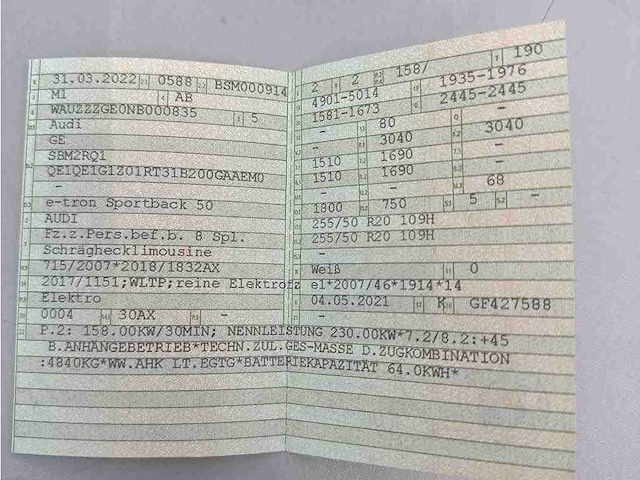 31.03.2022 0588 BSM000914
M1 AB
WAUZZZGE0NB000835 5
Audi
GE
SBM2RQ1
QE1QE1G1Z01RT31B200GAAEM0
-
e-tron Sportback 50
AUDI
Fz.z.Pers.bef.b. 8 Spl.
Schräghecklimousine
715/2007*2018/1832AX
2017/1151;WLTP;reine Elektrofz
Elektro
0004 30AX -
2 2 158/ 190
4901-5014 1935-1976
1581-1673 2445-2445
- 80 -
- 3040 3040
1510 1690 -
1510 1690 -
- - 68
1800 750 5 -
255/50 R20 109H
255/50 R20 109H
-
Weiß 0
e1*2007/46*1914*14
04.05.2021 K GF427588
-
P.2: 158.00KW/30MIN; NENNLEISTUNG 230.00KW*7.2/8.2:+45
B.ANHÄNGEBETRIEB*TECHN.ZUL.GES-MASSE D.ZUGKOMBINATION
:4840KG*WW.AHK LT.EGTG*BATTERIEKAPAZITÄT 64.0KWH*